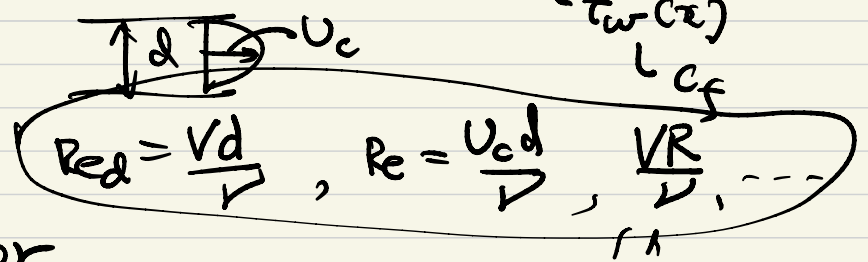 d U_c τ_w(x)
C_f
Re_d = Vd/ν , Re = U_c d/ν , VR/ν , ----
or